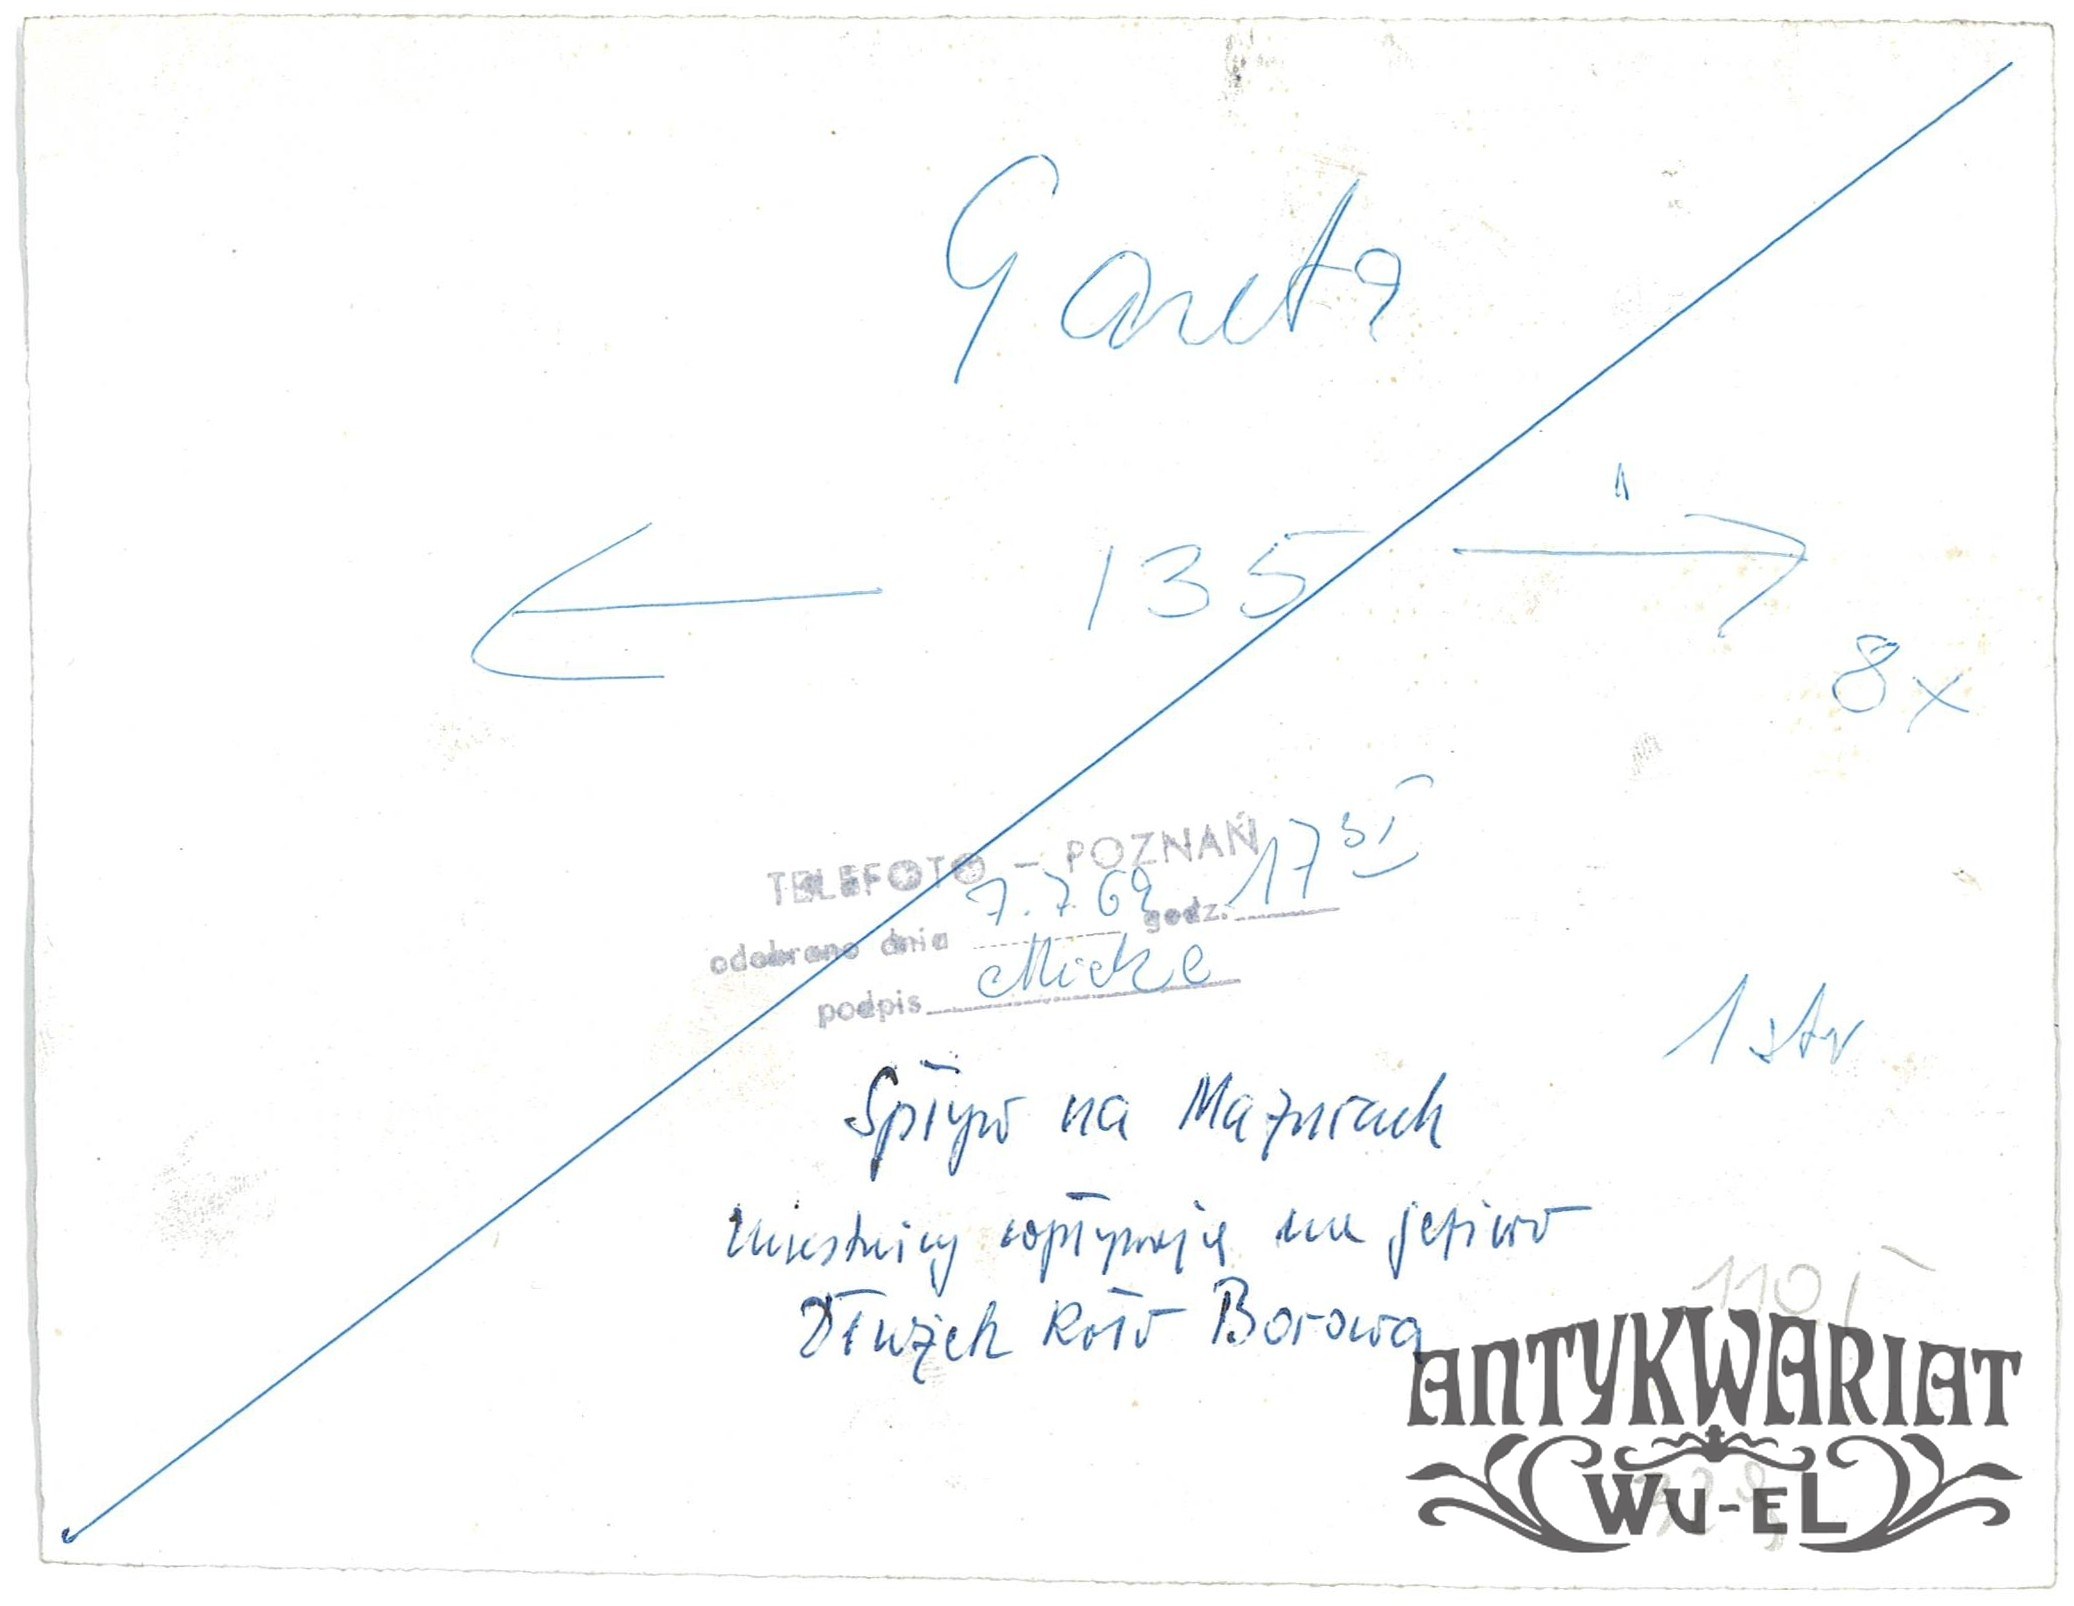 Gazeta
135
8x
TELEFOTO — POZNAŃ
odebrano dnia 7.7.69 godz. 17
podpis
1 str
Spływ na Mazurach
uczestnicy wpływają na jezioro
Dłużek koło Borowa
110
ANTYKWARIAT
WU-EL